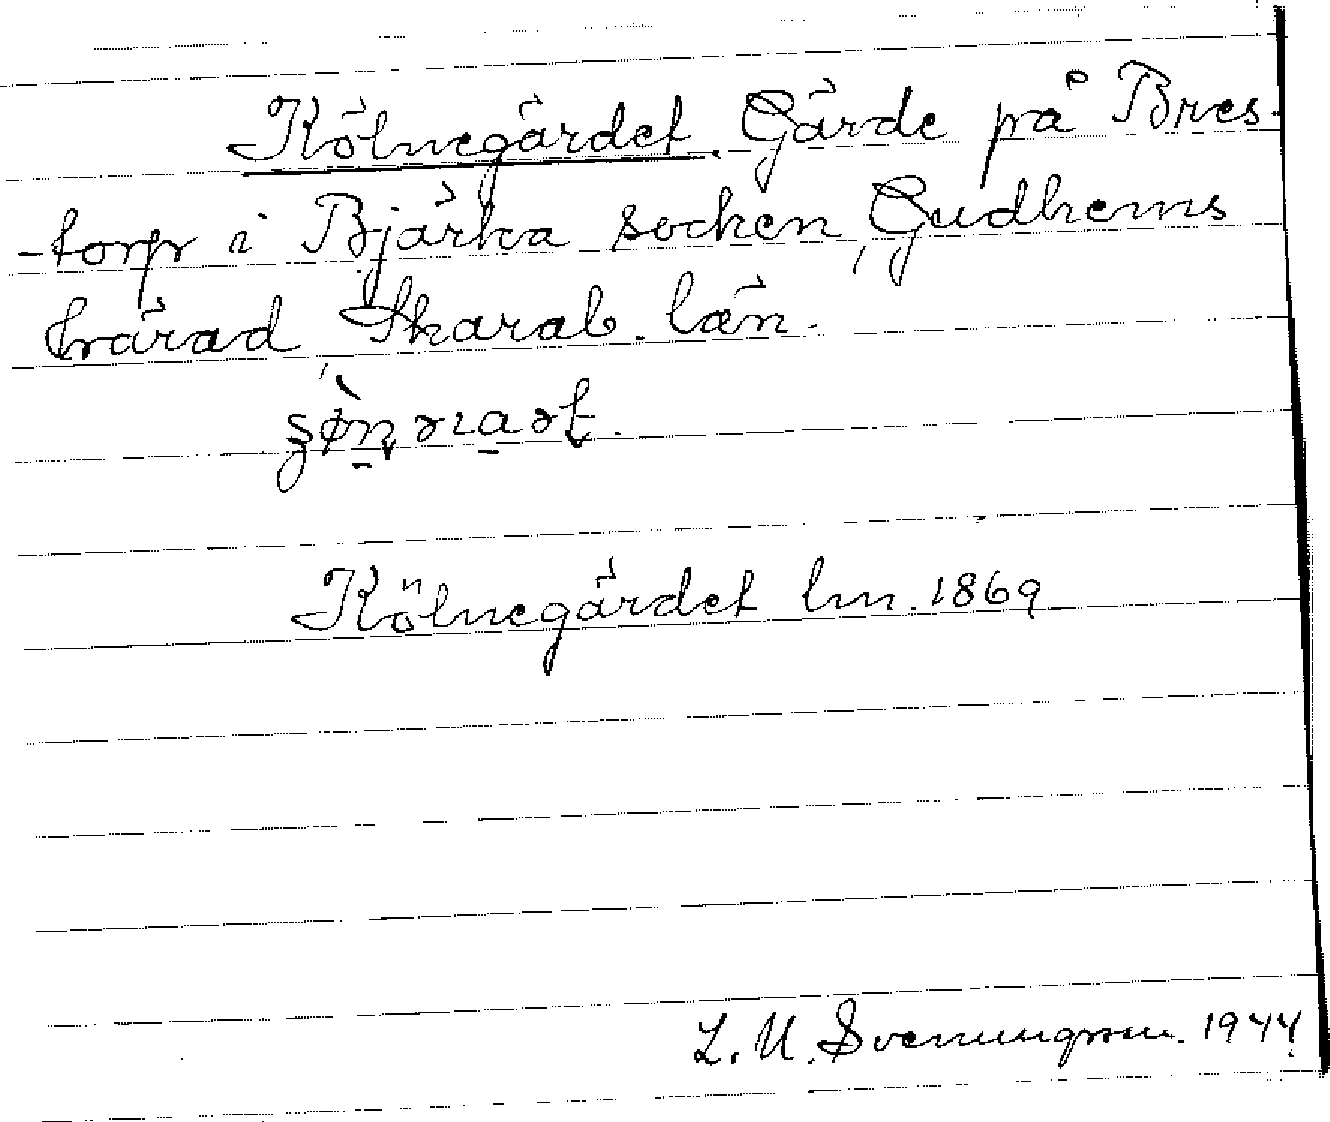 Kölnegärdet. Gärde på Bres-
-torp i Bjärka socken, Gudhems
härad, Skarab. län.
Kölnegärdet lm. 1869
L. U. Svenungsson. 1944